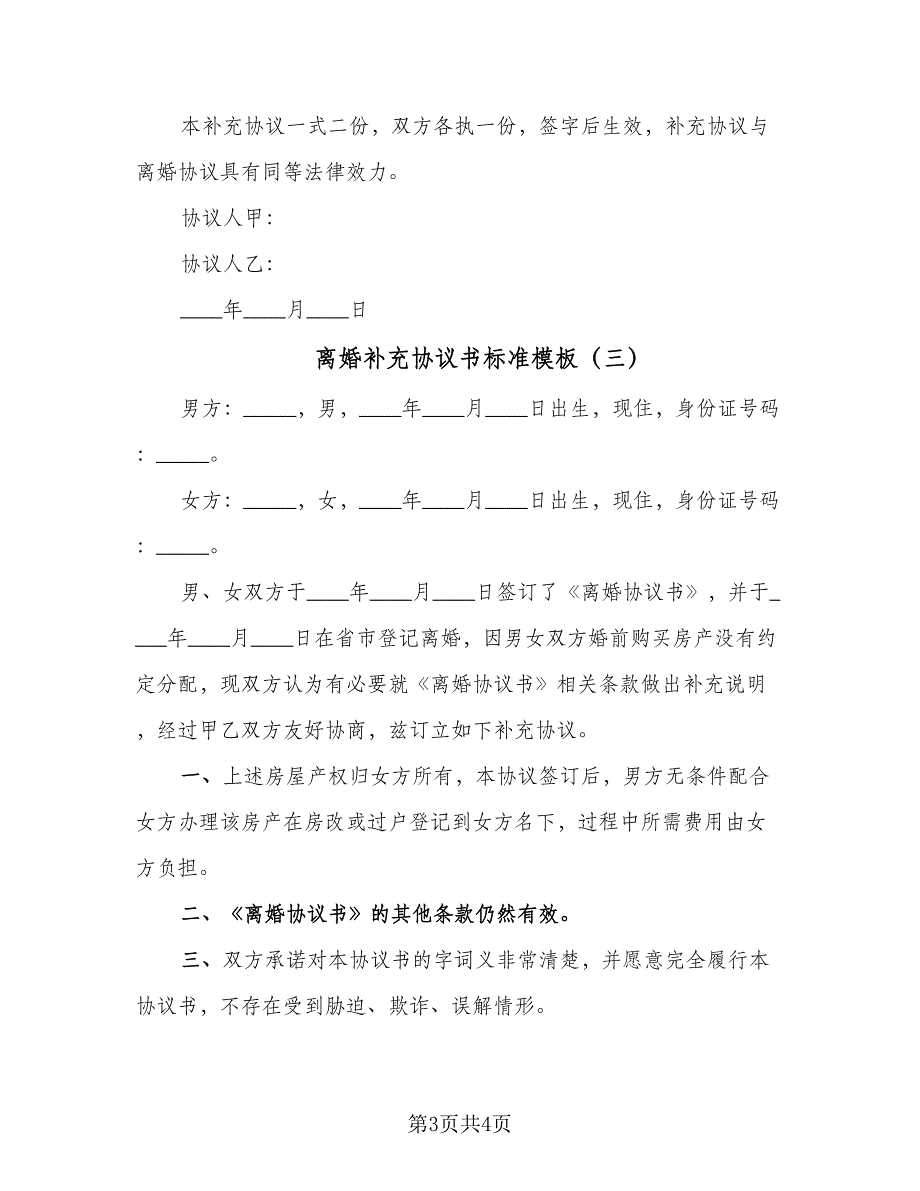 本补充协议一式二份，双方各执一份，签字后生效，补充协议与
离婚协议具有同等法律效力。
协议人甲：
协议人乙：
____年____月____日
离婚补充协议书标准模板（三）
男方：_____，男，____年____月____日出生，现住，身份证号码
：_____。
女方：_____，女，____年____月____日出生，现住，身份证号码
：_____。
男、女双方于____年____月____日签订了《离婚协议书》，并于_
___年____月____日在省市登记离婚，因男女双方婚前购买房产没有约
定分配，现双方认为有必要就《离婚协议书》相关条款做出补充说明
，经过甲乙双方友好协商，兹订立如下补充协议。
一、上述房屋产权归女方所有，本协议签订后，男方无条件配合
女方办理该房产在房改或过户登记到女方名下，过程中所需费用由女
方负担。
二、《离婚协议书》的其他条款仍然有效。
三、双方承诺对本协议书的字词义非常清楚，并愿意完全履行本
协议书，不存在受到胁迫、欺诈、误解情形。
第3页共4页